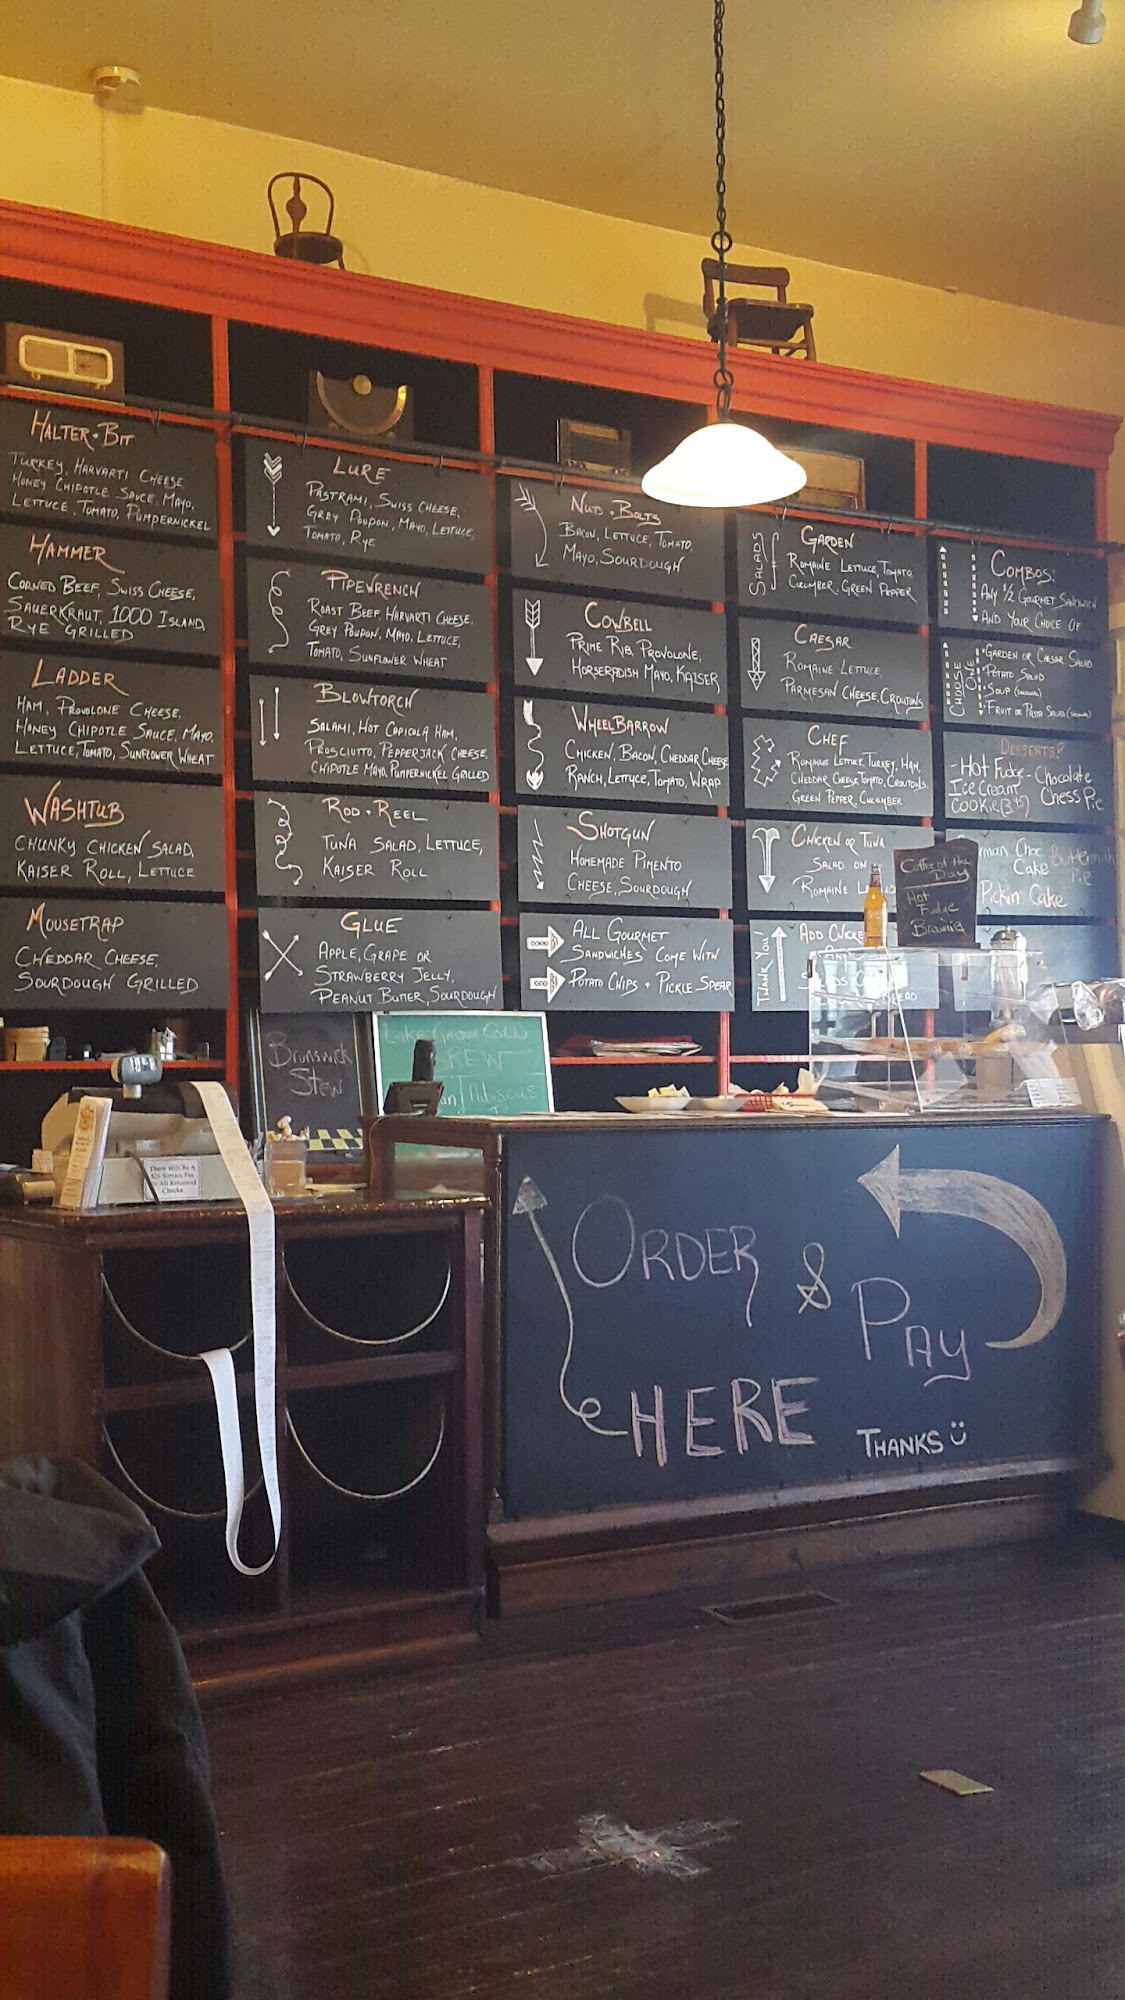 HALTER + BIT
TURKEY, HARVARTI CHEESE
HONEY CHIPOTLE SAUCE, MAYO,
LETTUCE, TOMATO, PUMPERNICKEL
HAMMER
CORNED BEEF, SWISS CHEESE,
SAUERKRAUT, 1000 ISLAND,
RYE GRILLED
LADDER
HAM, PROVOLONE CHEESE,
HONEY CHIPOTLE SAUCE, MAYO,
LETTUCE, TOMATO, SUNFLOWER WHEAT
WASHTUB
CHUNKY CHICKEN SALAD,
KAISER ROLL, LETTUCE
MOUSETRAP
CHEDDAR CHEESE,
SOURDOUGH GRILLED
LURE
PASTRAMI, SWISS CHEESE,
GREY POUPON, MAYO, LETTUCE,
TOMATO, RYE
PIPEWRENCH
ROAST BEEF, HARVARTI CHEESE,
GREY POUPON, MAYO, LETTUCE,
TOMATO, SUNFLOWER WHEAT
BLOWTORCH
SALAMI, HOT CAPICOLA HAM,
PROSCIUTTO, PEPPERJACK CHEESE,
CHIPOTLE MAYO, PUMPERNICKEL GRILLED
ROD + REEL
TUNA SALAD, LETTUCE,
KAISER ROLL
GLUE
APPLE, GRAPE OR
STRAWBERRY JELLY,
PEANUT BUTTER, SOURDOUGH
NUTS + BOLTS
BACON, LETTUCE, TOMATO,
MAYO, SOURDOUGH
COWBELL
PRIME RIB, PROVOLONE,
HORSERADISH MAYO, KAISER
WHEELBARROW
CHICKEN, BACON, CHEDDAR CHEESE
RANCH, LETTUCE, TOMATO, WRAP
SHOTGUN
HOMEMADE PIMENTO
CHEESE, SOURDOUGH
ALL GOURMET
SANDWICHES COME WITH
POTATO CHIPS + PICKLE SPEAR
SALADS
GARDEN
ROMAINE LETTUCE, TOMATO,
CUCUMBER, GREEN PEPPER
CAESAR
ROMAINE LETTUCE,
PARMESAN CHEESE, CROUTONS
CHEF
ROMAINE LETTUCE, TURKEY, HAM,
CHEDDAR CHEESE, TOMATO, CROUTONS,
GREEN PEPPER, CUCUMBER
CHICKEN OR TUNA
SALAD ON
ROMAINE
THANK YOU!
ADD
COMBOS:
ANY 1/2 GOURMET SANDWICH
AND YOUR CHOICE OF
CHOOSE ONE
GARDEN OR CAESAR SALAD
POTATO SALAD
SOUP (SEASONAL)
FRUIT OR PASTA SALAD (SEASONAL)
DESSERTS!
-HOT FUDGE - Chocolate
Ice Cream Chess Pie
COOKIE
Choc Buttermilk
Cake Pie
Pickin' Cake
Coffee of the
Day
Hot
Fudge
Brownie
Brunswick
Stew
COLD
BREW
Hibiscus
There Will Be A
Service Fee
All Returned
Checks
ORDER & PAY
HERE
THANKS